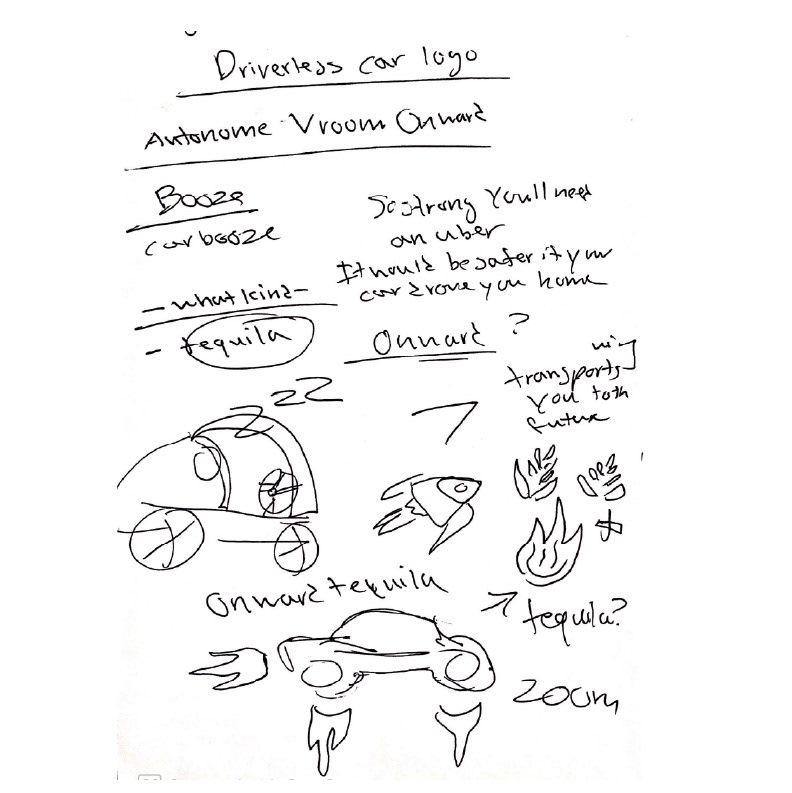 Driverless car logo
Autonome Vroom Onward
Booze
car booze
So strong You'll need
an uber
It would be safer if your
car drove you home
- what kind -
- tequila
Onward ?
transports
you to th
future
zzz
onward tequila
tequila?
zoom